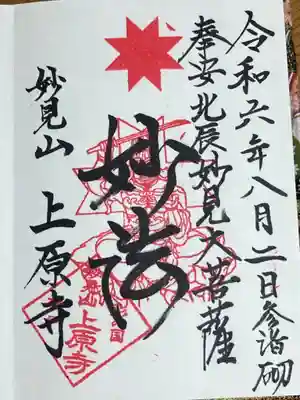 令和六年八月二日参詣砌
奉安北辰妙見大菩薩
妙法
妙見山 上原寺
上原寺